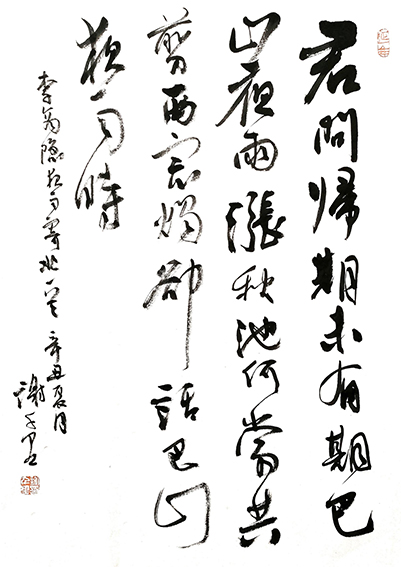 君問歸期未有期巴
山夜雨漲秋池何當共
剪西窗燭卻話巴山
夜雨時
李商隱夜雨寄北 辛丑夏月
謝